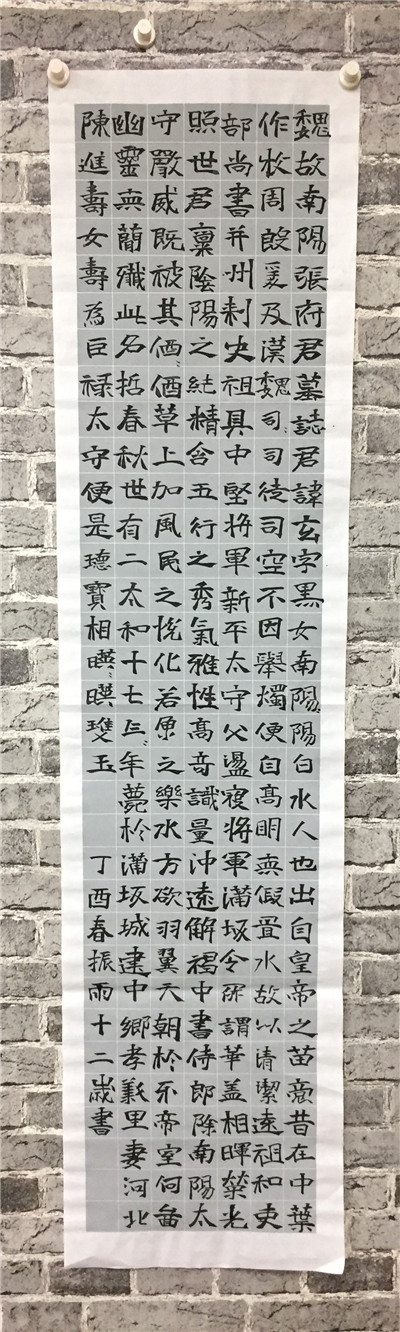 魏故南陽張府君墓誌君諱玄字黑女南陽陽白水人也出自皇帝之苗裔昔在中葉
作牧周殷爰及漢魏司司徒司空不因舉燭便自高明無假置水故以清潔遠祖和吏
部尚書并州刺史祖具中堅將軍新平太守父盪寇將軍蒲坂令所謂華蓋相暉榮光
照世君稟陰陽之純精含五行之秀氣雅性高奇識量沖遠解褐中書侍郎除南陽太
守嚴威既被其偤草上加風民之悅化若魚之樂水方欲羽翼天朝抓牙帝室何啚
幽靈無簡殲此名哲春秋世有二太和十七三年薨於蒲坂城建中鄉孝義里妻河北
陳進壽女壽為巨祿太守便是瓌寶相暎暎瓊玉 丁酉春振雨十二歲書